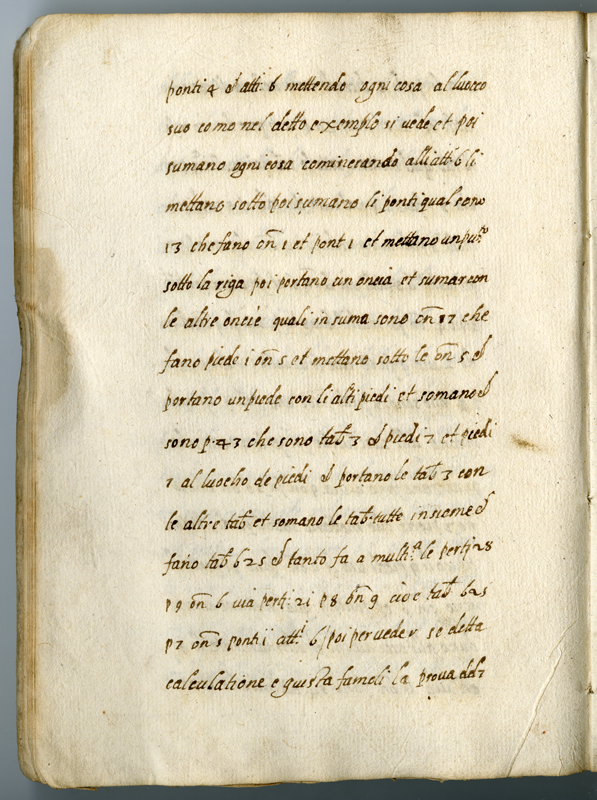 ponti 4 & atti. 6 mettendo ogni cosa al luoco
suo como nel detto exemplo si vede et poi
sumano ogni cosa cominzando alli att. 6 li
mettano sotto poi sumano li ponti qual sono
13 che fano on̄ 1 et pont 1 et mettano un pu.to
sotto la riga poi portano un oncia et sumar con
le altre oncie quali in suma sono on̄ 17 che
fano piede 1 on̄ 5 et mettano sotto le on̄ 5 &
portano un piede con li alti piedi et somano &
sono p. 43 che sono tab̄ 3 & piedi 7 et piedi
7 al luocho de piedi & portano le tab̄ 3 con
le altre tab̄ et somano le tab̄. tutte insieme &
fano tab̄ 625 & tanto fa a multi.a le pertj 28
p 9 on̄ 6 via pertj. 21 p 8 on̄ 9 cioe tab̄ 625
p 7 on̄ 5 ponti i att.i 6 / poi per veder se detta
calculatione e giusta fameli la prova del 7